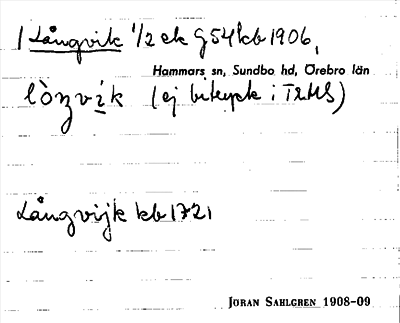 / Långvik 1/2 ek G54 kb 1906,
Hammars sn, Sundbo hd, Örebro län
lòŋvi̱k (ej bitryck i TRMS)
Långvijk kb 1721
JÖRAN SAHLGREN 1908-09